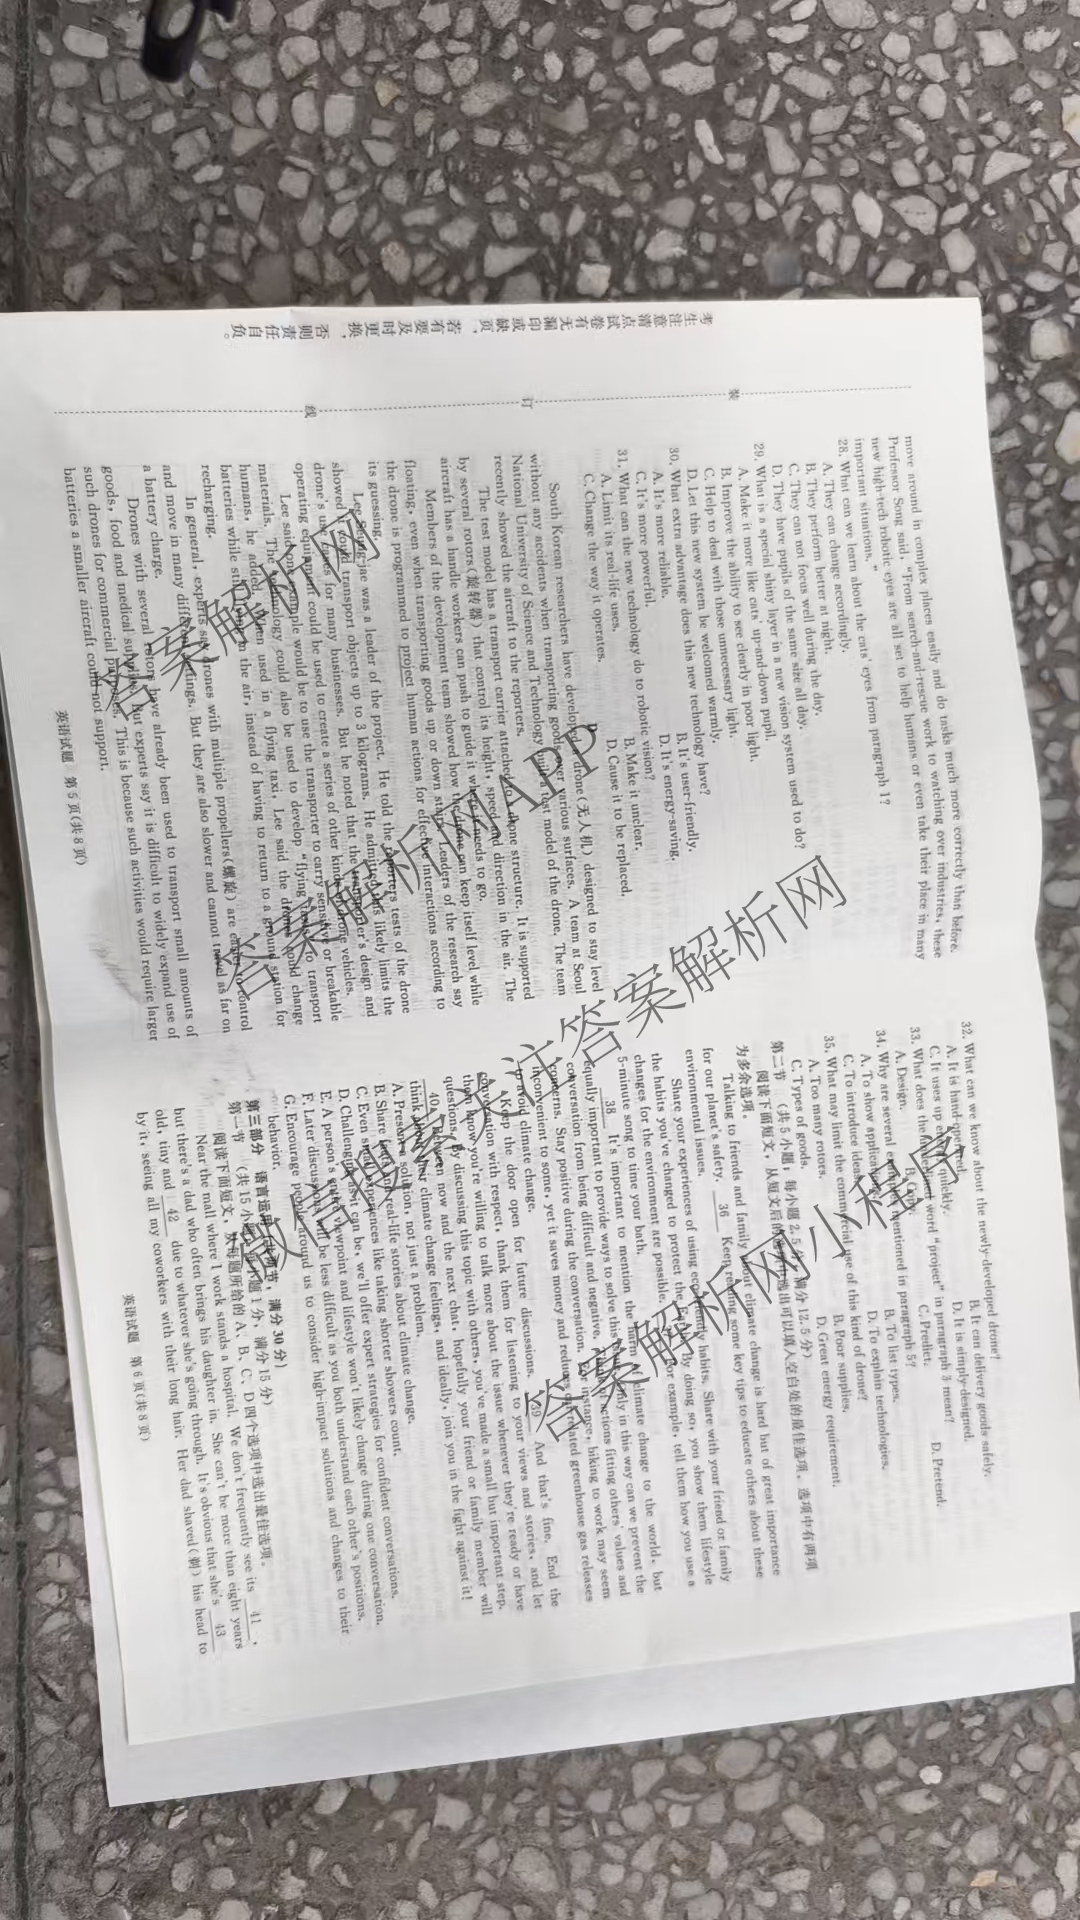 考生注意清点试卷有无漏印或缺页,若有要及时更换,否则责任自负。
装
订
线
move around in complex places easily and do tasks much more correctly than before.
Professor Song said, "From search-and-rescue work to watching over industries, these
new high-tech robotic eyes are all set to help humans or even take their place in many
important situations."
28. What can we learn about the cats' eyes from paragraph 1?
A. They can change accordingly.
B. They perform better at night.
C. They can not focus well during the day.
D. They have pupils of the same size all day.
29. What is a special shiny layer in a new vision system used to do?
A. Make it more like cats' up-and-down pupil.
B. Improve the ability to see clearly in poor light.
C. Help to deal with those unnecessary light.
D. Let this new system be welcomed warmly.
30. What extra advantage does this new technology have?
A. It's more reliable. B. It's user-friendly.
C. It's more powerful. D. It's energy-saving.
31. What can the new technology do to robotic vision?
A. Limit its real-life uses. B. Make it unclear.
C. Change the way it operates. D. Cause it to be replaced.
D
South Korean researchers have developed a drone(无人机) designed to stay level
without any accidents when transporting goods over various surfaces. A team at Seoul
National University of Science and Technology built a test model of the drone. The team
recently showed the aircraft to the reporters.
The test model has a transport carrier attached to a drone structure. It is supported
by several rotors(旋转器) that control its height, speed and direction in the air. The
aircraft has a handle workers can push to guide it where it needs to go.
Members of the development team showed how the drone can keep itself level while
floating, even when transporting goods up or down stairs. Leaders of the research say
the drone is programmed to project human actions for effective interactions according to
its guessing.
Lee Seung-jae was a leader of the project. He told the reporters tests of the drone
showed it could transport objects up to 3 kilograms. He admitted this likely limits the
drone's use cases for many businesses. But he noted that the transporter's design and
operating equipment could be used to create a series of other kinds of drone vehicles.
Lee said one example would be to use the transporter to carry sensitive or breakable
materials. The technology could also be used to develop "flying taxis" to transport
humans, he added. When used in a flying taxi, Lee said the drone could change
batteries while still in the air, instead of having to return to a ground station for
recharging.
In general, experts say drones with multiple propellers(螺旋) are easier to control
and move in many different settings. But they are also slower and cannot travel as far on
a battery charge.
Drones with several rotors have already been used to transport small amounts of
goods, food and medical supplies. But experts say it is difficult to widely expand use of
such drones for commercial purposes. This is because such activities would require larger
batteries a smaller aircraft could not support.
英语试题 第5页(共8页)
32. What can we know about the newly-developed drone?
A. It is hand-operated. B. It can delivery goods safely.
C. It uses up energy quickly. D. It is simply-designed.
33. What does the underlined word "project" in paragraph 3 mean?
A. Design. B. Copy. C. Predict. D. Pretend.
34. Why are several examples mentioned in paragraph 5?
A. To show applications. B. To list types.
C. To introduce ideas. D. To explain technologies.
35. What may limit the commercial use of this kind of drone?
A. Too many rotors. B. Poor supplies.
C. Types of goods. D. Great energy requirement.
第二节 (共5小题;每小题2.5分,满分12.5分)
阅读下面短文,从短文后的选项中选出可以填入空白处的最佳选项。选项中有两项
为多余选项。
Talking to friends and family about climate change is hard but of great importance
for our planet's safety. 36 Keep reading some key tips to educate others about these
environmental issues.
Share your experiences of using eco-friendly habits. Share with your friend or family
the habits you've changed to protect the Earth. By doing so, you show them lifestyle
changes for the environment are possible. For example, tell them how you use a
5-minute song to time your bath.
38 It's important to mention the harm of climate change to the world, but
equally important to provide ways to solve this issue. Only in this way can we prevent the
conversation from being difficult and negative. actions fitting others' values and
concerns. Stay positive during the conversation. For instance, biking to work may seem
inconvenient to some, yet it saves money and reduces car-related greenhouse gas releases
to avoid climate change.
Keep the door open for future discussions. 39 And that's fine. End the
conversation with respect, thank them for listening to your views and stories, and let
them know you're willing to talk more about the issue whenever they're ready or have
questions. By discussing this topic with others, you've made a small but important step.
40 Between now and the next chat, hopefully your friend or family member will
think about their climate change feelings, and ideally, join you in the fight against it!
A. Present a solution, not just a problem.
B. Share facts and real-life stories about climate change.
C. Even small experiences like taking shorter showers count.
D. Challenging as it can be, we'll offer expert strategies for confident conversations.
E. A person's entire viewpoint and lifestyle won't likely change during one conversation.
F. Later discussions will be less difficult as you both understand each other's positions.
G. Encourage people around us to consider high-impact solutions and changes to their
behavior.
第三部分 语言运用(共两节,满分30分)
第一节 (共15小题;每小题1分,满分15分)
阅读下面短文,从每题所给的A、B、C、D四个选项中选出最佳选项。
Near the mall where I work stands a hospital. We don't frequently see its 41 ,
but there's a dad who often brings his daughter in. She can't be more than eight years
old, tiny and 42 due to whatever she's going through. It's obvious that she's 43
by it, seeing all my coworkers with their long hair. Her dad shaved(剃) his head to
英语试题 第6页(共8页)
答案解析网
答案解析网APP
微信搜索关注答案解析网
答案解析网小程序